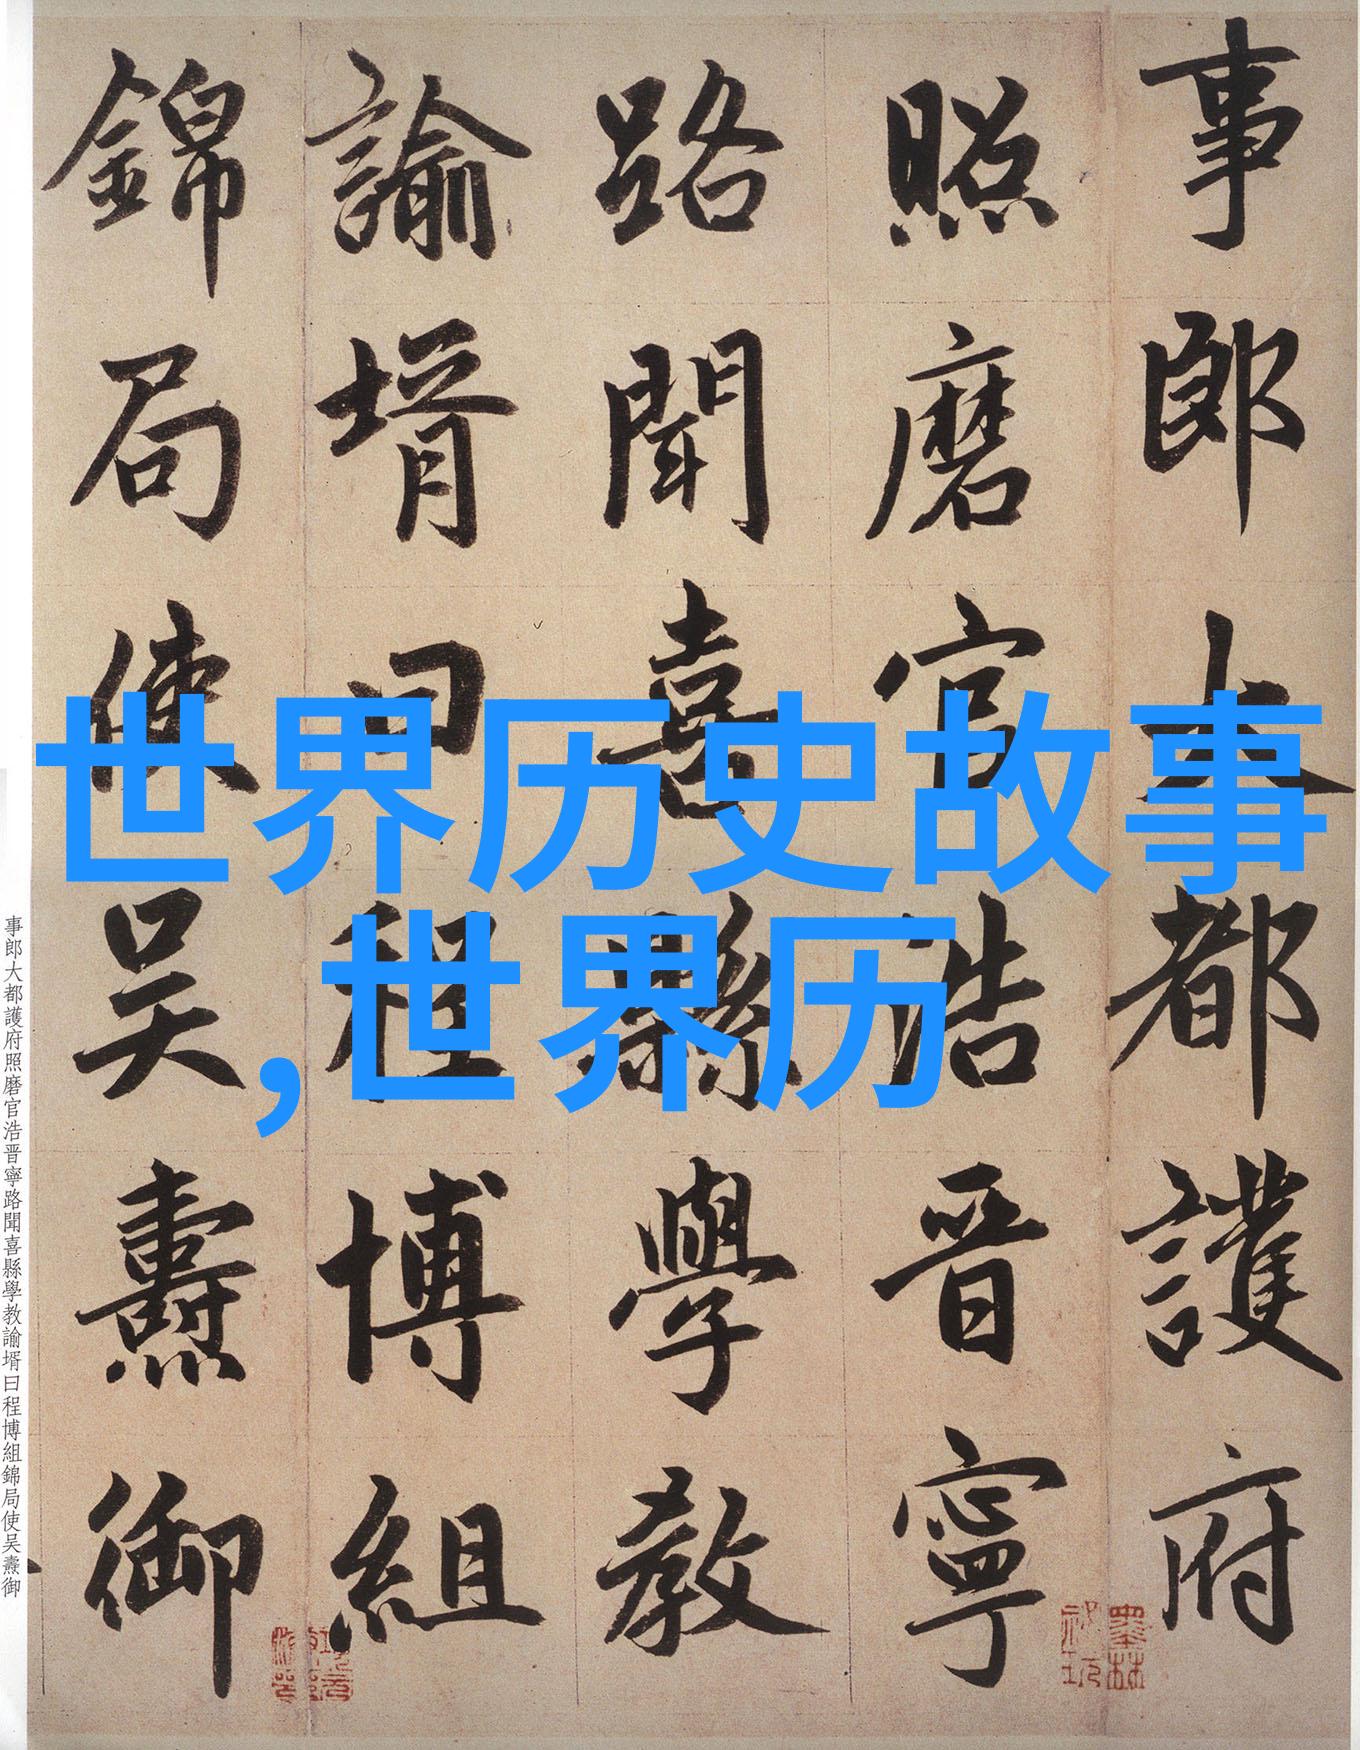 事郎大都護府
照磨官浩晋寧
路聞喜縣學教
諭壻曰程博組
錦局使吴燾御
世界历史故事
,世界历
事郎大都護府照磨官浩晋寧路聞喜縣學教諭壻曰程博組錦局使吴燾御